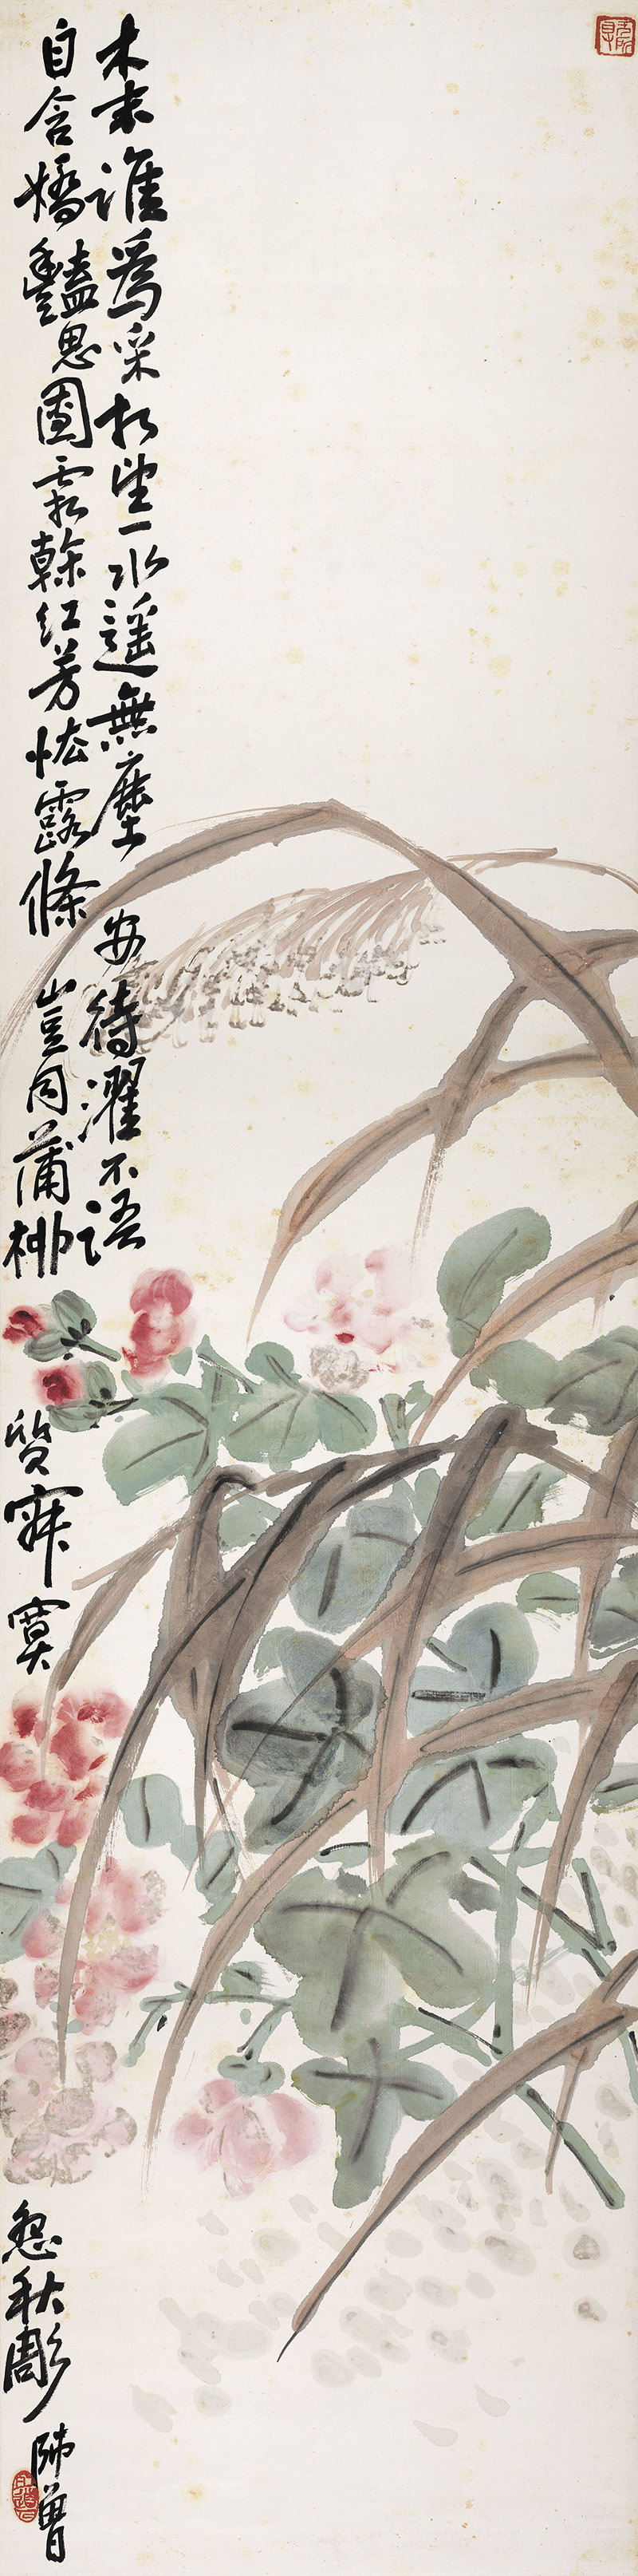 木末誰為采相望一水遥無塵安待濯不語
自含嬌豔思圖霜榦紅芳怯露條豈同蒲柳質寂寞怨秋彫
師曾